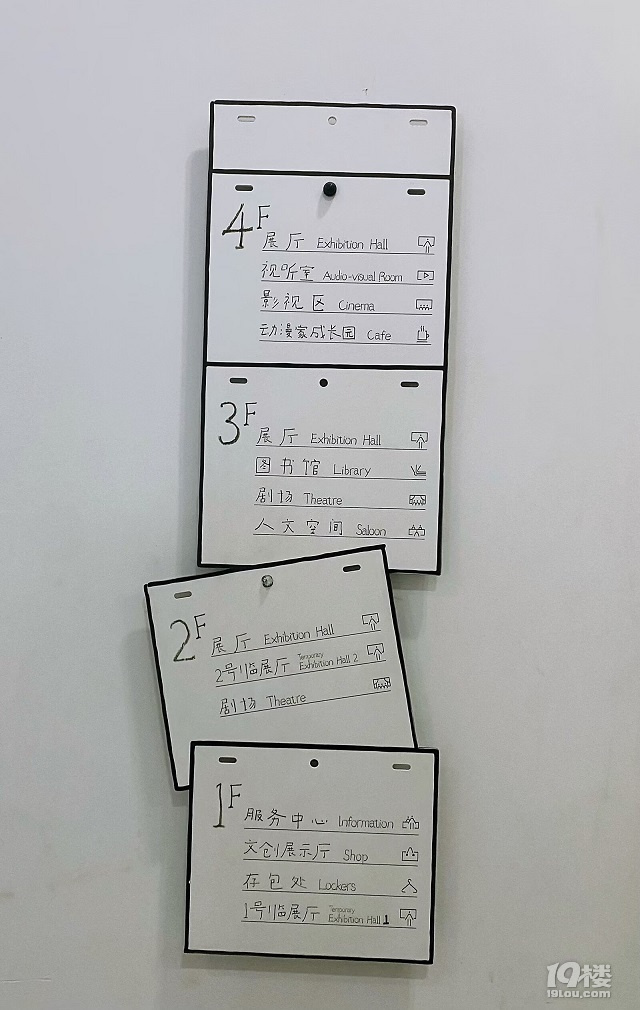 4F
展厅 Exhibition Hall
视听室 Audio-visual Room
影视区 Cinema
动漫家成长园 Cafe
3F
展厅 Exhibition Hall
图书馆 Library
剧场 Theatre
人文空间 Saloon
2F
展厅 Exhibition Hall
2号临展厅 Temporary Exhibition Hall 2
剧场 Theatre
1F
服务中心 Information
文创展示厅 Shop
存包处 Lockers
1号临展厅 Temporary Exhibition Hall 1
19楼
19lou.com